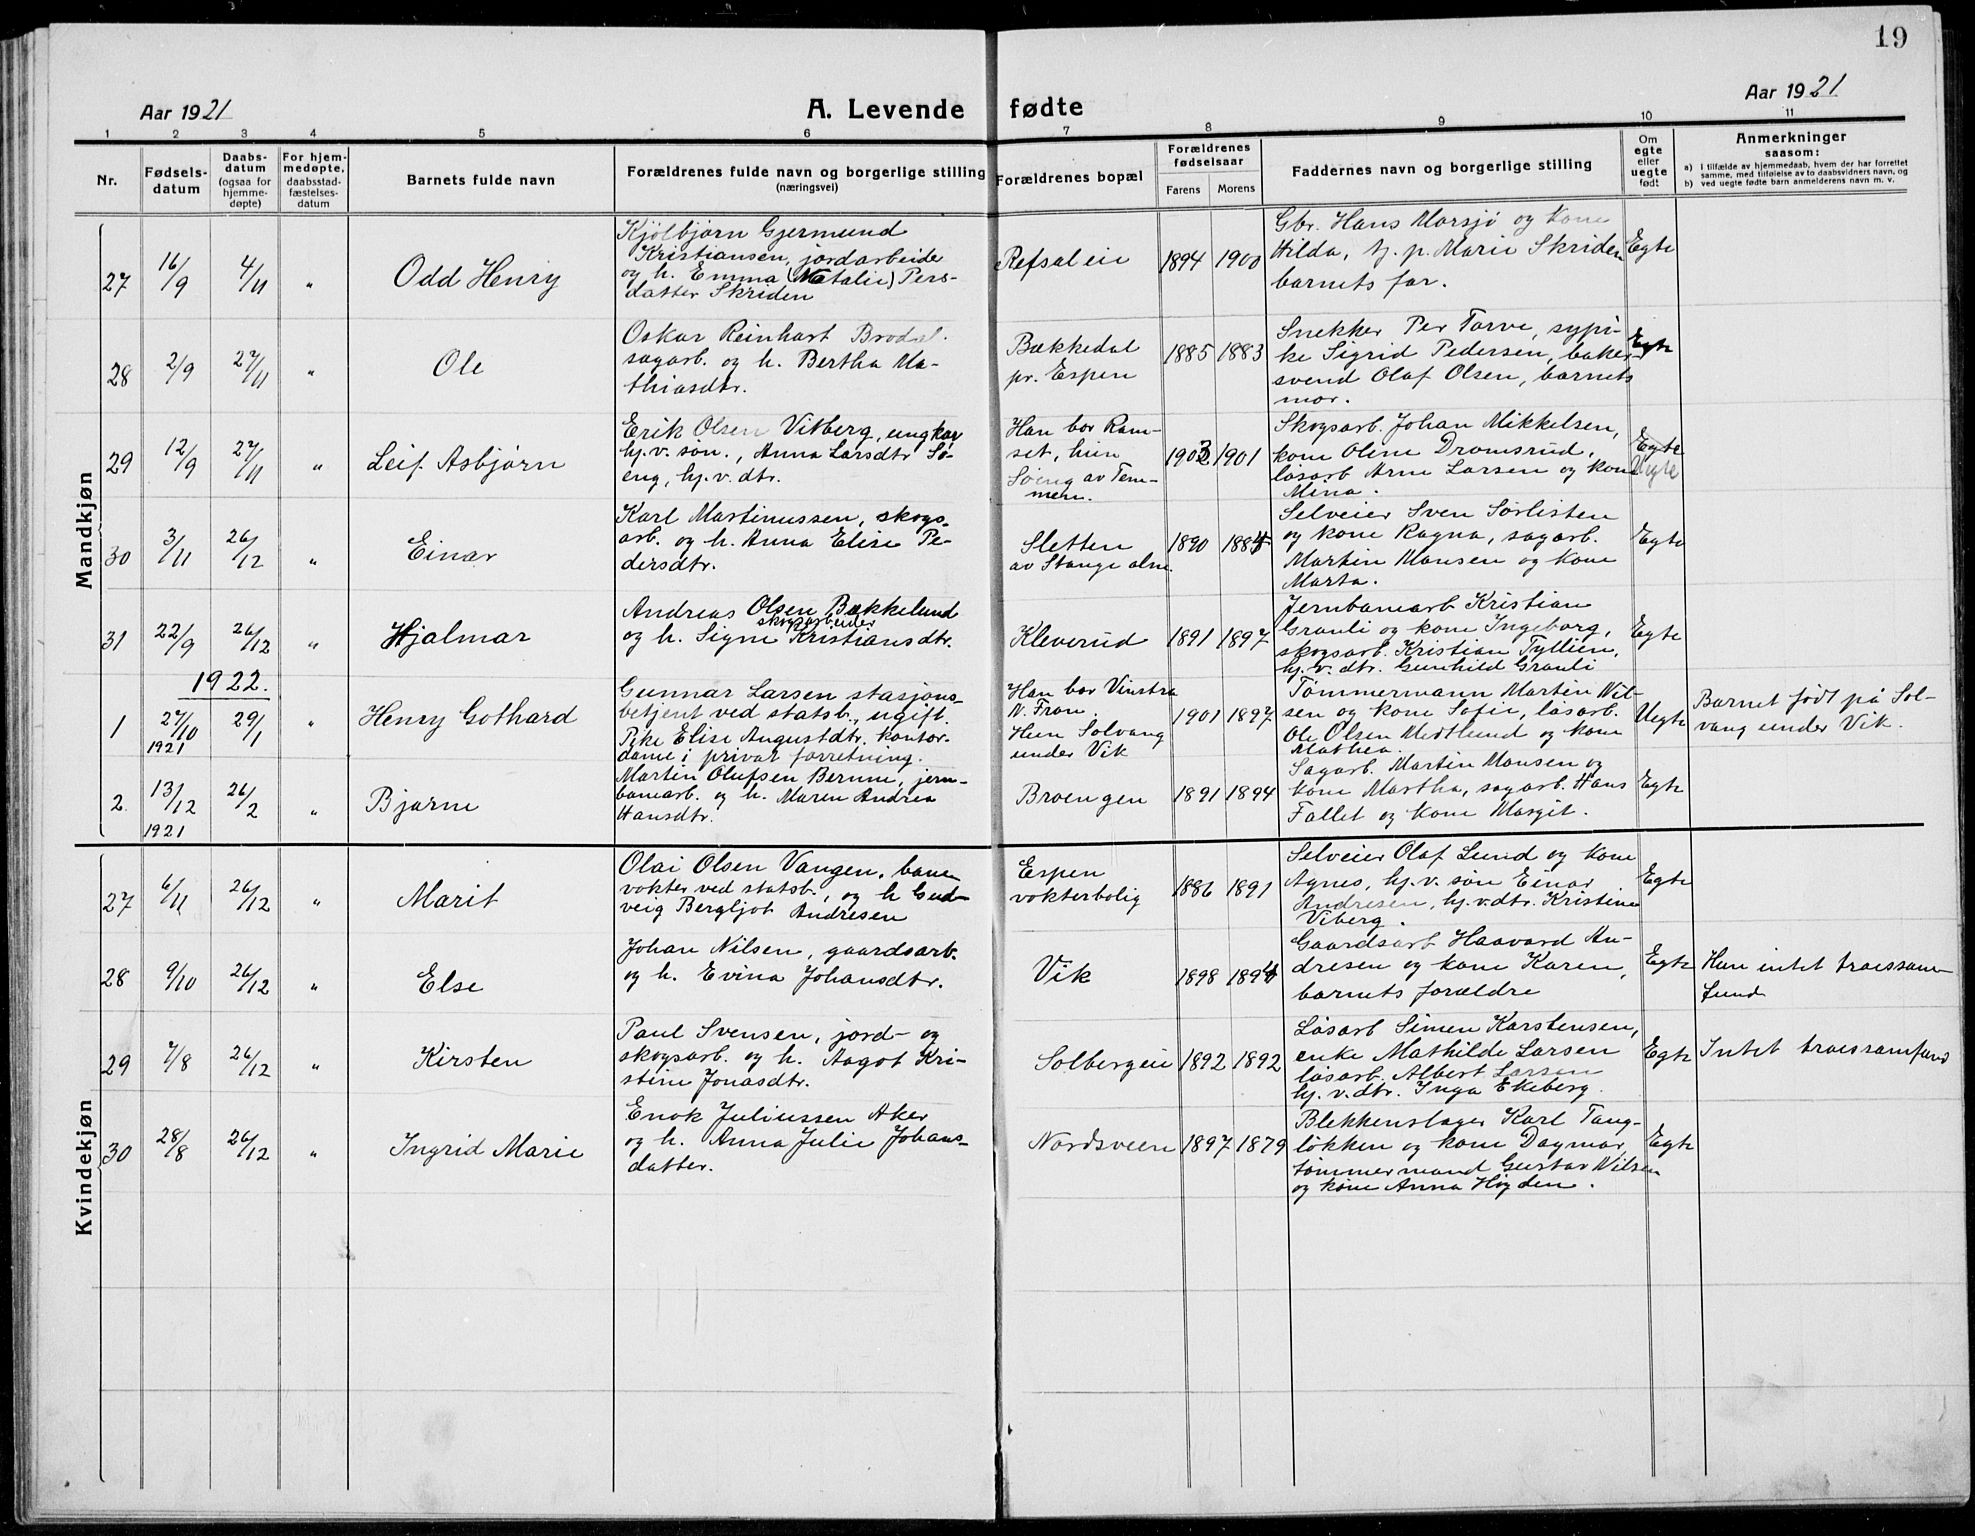 19
Aar 1921
A. Levende fødte
Aar 1921
1 2 3 4 5 6 7 8 9 10 11
Nr.
Fødsels-
datum
Daabs-
datum
(ogsaa for
hjemme-
døpte)
For hjem-
medøpte,
daabsstad-
fæstelses-
datum
Barnets fulde navn
Forældrenes fulde navn og borgerlige stilling
(næringsvei)
Forældrenes bopæl
Forældrenes
fødselsaar
Farens Morens
Faddernes navn og borgerlige stilling
Om
egte
eller
uegte
født
Anmerkninger
saasom:
a) I tilfælde av hjemmedaab, hvem der har forrettet
samme, med tilføielse av to daabsvidners navn, og
b) ved uegte fødte barn anmelderens navn m. v.
Mandkjøn
27 16/9 4/11 " Odd Henry
Kjølbjørn Gjermund
Kristiansen, jordarbeider
og h. Emma (Natalie) Pers-
datter Skriden
Refsaleie 1894 1900
Gbr. Hans Morsjø og kone
Hilda, tj. p. Marie Skriden
barnets far.
Egte
28 2/9 27/11 " Ole
Oskar Reinhart Brodal.
sagarb. og h. Bertha Ma-
thiasdtr.
Bækkedal
pr. Espen
1885 1883
Snekker Per Torve, sypi-
ke Sigrid Pedersen, baker-
svend Olaf Olsen, barnets
mor.
Egte
29 12/9 27/11 " Leif Asbjørn
Erik Olsen Vitberg, ungkar
hj. v. søn., Anna Larsdtr Sø-
eng, hj. v. dtr.
Han bor Ram-
set, hun
Søeng av Tem-
men.
1903 1901
Skogsarb. Johan Mikkelsen,
kone Oline Dromsrud,
løsarb Arne Larsen og kone
Mina.
Egte
Uegte
30 3/11 26/12 " Einar
Karl Martinussen, skogs-
arb. og h. Anna Elise Pe-
dersdtr.
Sletten
av Stange alm.
1890 1884
Selveier Sven Sørlisten
og kone Ragna, sagarb.
Martin Monsen og kone
Marta.
Egte
31 22/9 26/12 " Hjalmar
Andreas Olsen Bækkelund
skogsarbeider
og h. Signe Kristiansdtr.
Kleverud 1891 1897
Jernbanearb Kristian
Granli og kone Ingeborg,
skogsarb. Kristian Tyllien,
hj. v. dtr. Gunhild Granli
Egte
1922.
1 27/10 1921 29/1 " Henry Gothard
Gunnar Larsen stasjons-
betjent ved statsb., ugift.
Pike Elise Augustdtr. kontor-
dame i privat forretning.
Han bor Vinstra
N. Fron.
Hun Solvang
under Vik
1901 1897
Tømmermann Martin Nil-
sen og kone Sofie, løsarb.
Ole Olsen Midtlund og kone
Mathea.
Uegte
Barnet født på Sol-
vang under Vik.
2. 13/12 1921 26/2 " Bjarne
Martin Olufsen Bernie, jern-
banearb. og h. Maren Andrea
Hansdtr.
Broengen 1891 1894
Sagarb. Martin Monsen og
kone Martha, sagarb. Hans
Fallet og kone Margit.
Egte
Kvindekjøn
27 6/11 26/12 " Marit
Olai Olsen Vangen, bane
vokter ved statsb., og h Gud-
veig Bergljot Andresen
Espen
vokterbolig
1886 1891
Selveier Olaf Lund og kone
Agnes, hj. v. søn Einar
Andresen, hj. v. dtr. Kristine
Viberg.
Egte
28 9/10 26/12 " Else
Johan Nilsen, gaardsarb.
og h. Evina Johansdtr.
Vik 1898 1894
Gaardsarb Haavard An-
dresen og kone Karen,
barnets forældre
Egte
Hun intet troessam-
fund
29 7/8 26/12 " Kirsten
Paul Svensen, jord- og
skogsarb. og h. Aagot Kri-
stine Jonasdtr.
Solbergeie 1892 1892
Løsarb Simen Karstensen,
enke Mathilde Larsen
løsarb. Albert Larsen
hj. v. dtr. Inga Ekeberg.
Egte
Intet troessamfund
30 28/8 26/12 " Ingrid Marie
Enok Juliussen Aker
og h. Anna Julie Johans-
datter.
Nordsveen 1897 1879
Blekkenslager Karl Tang-
løkken og kone Dagmar,
tømmermand Gustav Nilsen
og kone Anna Høgden.
Egte